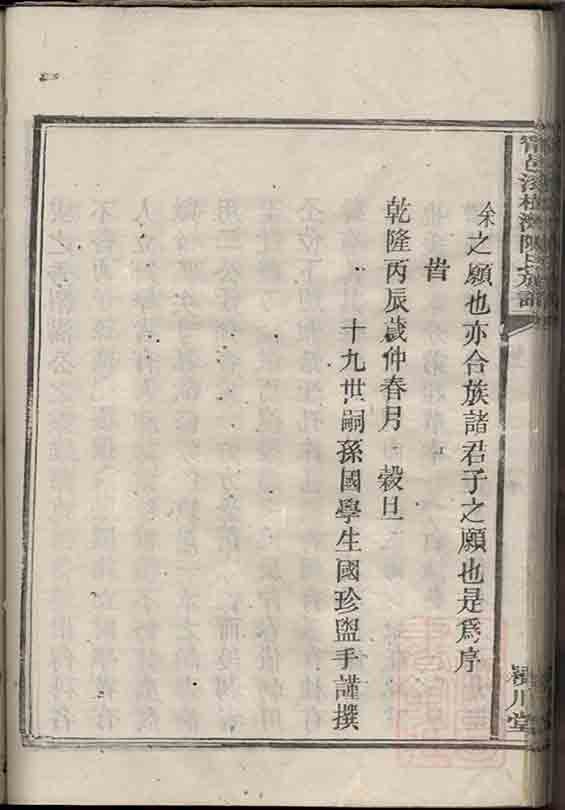 余之願也亦合族諸君子之願也是爲序
旹
乾隆丙辰歲仲春月 穀旦
十九世嗣孫國學生國珍盥手謹撰
陳氏族譜
潁川堂